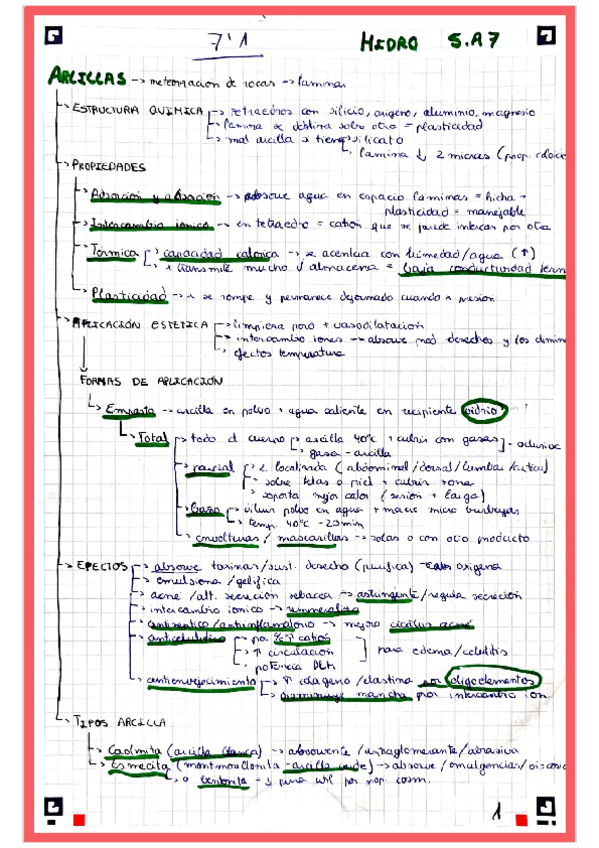 7'1 HIDRO S.A7
ARCILLAS -> meteorización de rocas -> láminas
-> ESTRUCTURA QUÍMICA -> tetraedros con silicio, oxígeno, aluminio, magnesio
-> lámina se desliza sobre otra = plasticidad
-> mal arcilla si tiene silicato
-> lámina ↓ 2 micras (prop.
-> PROPIEDADES
-> Adsorción y absorción -> absorve agua en espacio láminas = hincha =
plasticidad = manejable
-> Intercambio iónico -> en tetraedro = catión que se puede intercam por otro
-> Térmica -> capacidad calórica -> se acentúa con humedad/agua (↑)
-> transmite mucho y almacena = baja conductividad térm
-> Plasticidad -> se rompe y permanece deformado cuando presión
-> APLICACIÓN ESTÉTICA -> limpieza poro + vasodilatación
-> intercambio iones -> absorve prod. desechos y los elimin
-> efectos temperatura
FORMAS DE APLICACIÓN
-> Emplasto -> arcilla en polvo + agua caliente en recipiente vidrio
-> Total -> todo el cuerpo -> arcilla 40ºC + cubrir con gasas - oclusivo
-> gasa - arcilla
-> parcial -> z. localizada (abdominal/dorsal/lumbar/
-> sobre telas o piel + cubrir zona
-> soporta mejor calor (sesión + larga)
-> baño -> diluir polvo en agua + masaje micro burbujas
-> temp. 40ºC - 20min
-> envolturas / mascarillas -> solas o con otro producto
-> EFECTOS -> absorve toxinas/sust. desecho (purifica) oxígena
-> emulsiona / gelifica
-> acné/alt. secreción sebácea -> astringente / regula secreción
-> intercambio iónico -> remineraliza
-> antiséptico/antiinflamatorio -> mejora cicatriz acné
-> anticelulítico -> por % ↑ catión
-> ↑ circulación
-> potencia DLM
para edema/celulitis
-> antienvejecimiento -> ↑ colágeno/elastina por oligoelementos
-> disminuye mancha por intercambio ión
-> TIPOS ARCILLA
-> Caolinita (arcilla blanca) -> absorvente / antiaglomerante / abrasiva
-> Esmectita (montmorillonita - arcilla verde) -> absorve /
-> o bentonita -> y para util por prep. cosm.
1